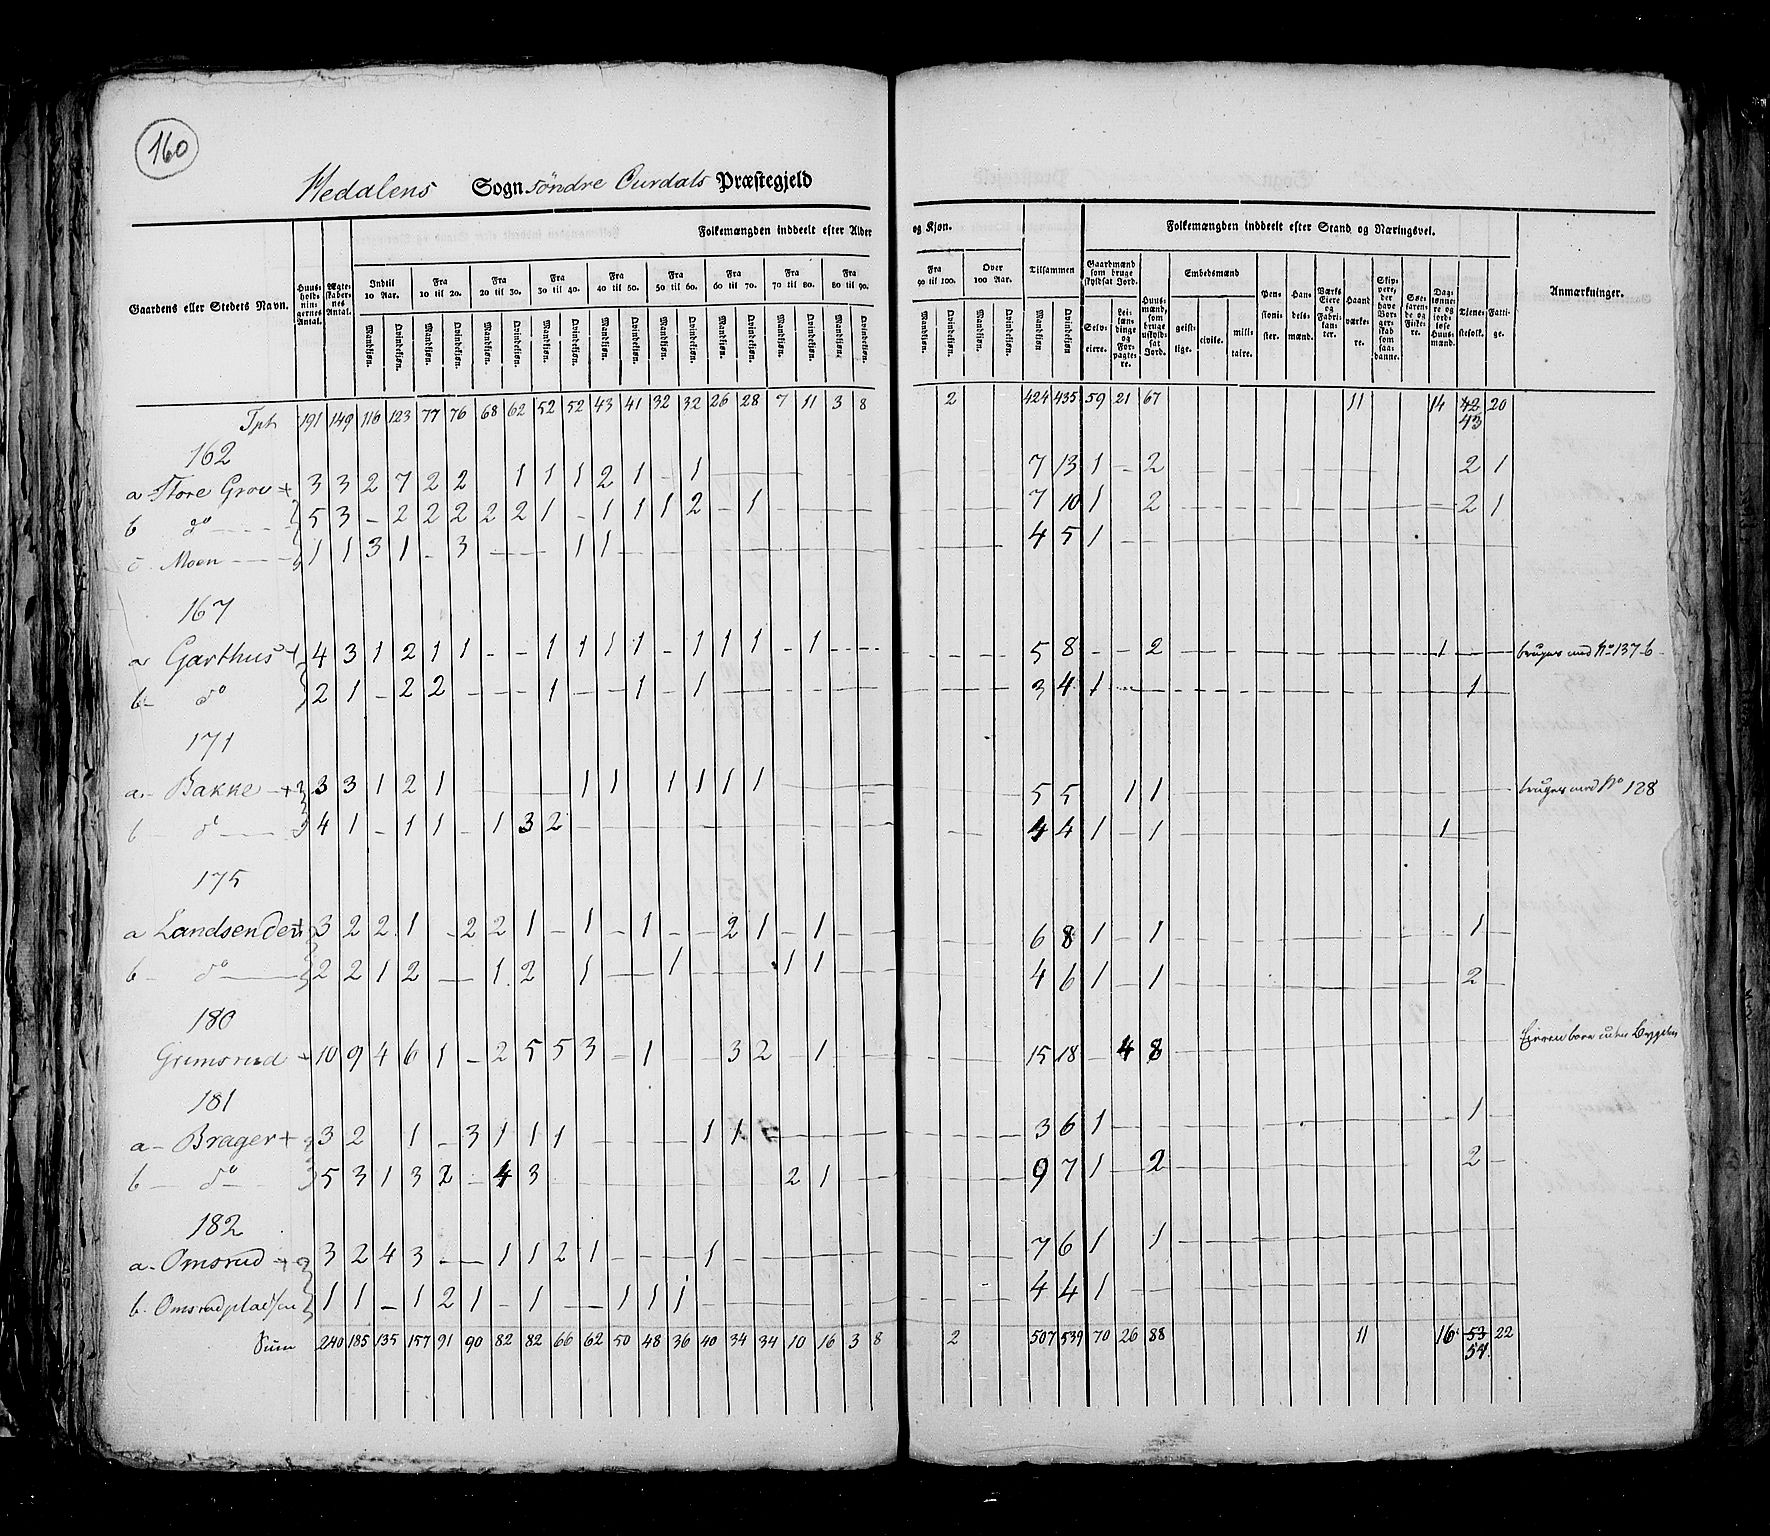 160
Hedalens Sogn søndre Ourdals Præstegjeld
Gaardens eller Stedets Navn. Huusholdningernes Antal. Ægteskabernes Antal. Folkemængden inddeelt efter Alder og Kjøn. Tilsammen Folkemængden inddeelt efter Stand og Næringsvei. Anmærkninger.
Indtil 10 Aar. Fra 10 til 20. Fra 20 til 30. Fra 30 til 40. Fra 40 til 50. Fra 50 til 60. Fra 60 til 70. Fra 70 til 80. Fra 80 til 90. Fra 90 til 100. Over 100 Aar.
Gaardmænd som bruge skyldsat Jord. Huusmænd, som bruge uskyldsat Jord. Embedsmænd Pensionister. Handelsmænd. Værks Eiere og Fabrikanter. Haandværkere. Skippere, der have Borgerskab som saadanne. Søefarende og Fiskere. Daglønnere og jordløse Huusmænd. Tjenestefolk. Fattige.
Mandkjøn. Qvindekjøn. Mandkjøn. Qvindekjøn. Mandkjøn. Qvindekjøn. Mandkjøn. Qvindekjøn. Mandkjøn. Qvindekjøn. Mandkjøn. Qvindekjøn. Mandkjøn. Qvindekjøn. Mandkjøn. Qvindekjøn. Mandkjøn. Qvindekjøn. Mandkjøn. Qvindekjøn. Mandkjøn. Qvindekjøn. Mandkjøn Qvindekjøn Selveiere. Leilændinge og Forpagtere. geistlige. civile. militaire.
Tpt 191 149 116 123 77 76 68 62 52 52 43 41 32 32 26 28 7 11 3 8 2 424 435 59 21 67 11 14 42 20
43
162
a Store Grov + 3 3 2 7 2 2 1 1 1 2 1 - 1 - 7 13 1 - 2 2 1
b do 5 3 - 2 2 2 2 2 1 - 1 1 1 2 - 1 - 7 10 1 2 2 1
c Moen 1 1 3 1 - 3 - - 1 1 - 4 5 1
167
a Garthus + 4 3 1 2 1 1 - - 1 1 1 1 - 1 1 1 - 1 - 5 8 - - 2 1 - bruges med No 137 b
b do 2 1 - 2 2 1 1 - 1 - 3 4 1 1
171
a Bakke + 3 3 1 2 1 - 1 1 1 1 1 1 - 5 5 1 1 bruges med No 128
b do 4 1 - 1 1 - 1 3 2 - 4 4 1 - 1 1
175
a Landsenden + 3 2 2 1 - 2 2 1 - 1 - 1 - - 2 1 - 1 - 6 8 1 - 1 1
b do 2 2 1 2 - 1 2 1 - 1 1 1 - 4 6 1 - 1 2
180
Grimsrud + 10 9 4 6 1 - 2 5 5 3 - 1 3 2 - 1 - 15 18 - 4 8 Eieren boer uden Bygden
181
a Brager + 3 2 1 - 3 1 1 1 - 1 1 - 3 6 1 - 1
b do 5 3 1 3 2 - 4 3 - 2 1 - 9 7 1 - 2 2 -
182
a Omsrud + 3 2 4 3 - - 1 1 2 1 - 1 - 7 6 1 1
b Omsrudpladsen 1 1 - 1 2 1 - 1 - 1 1 1 - 4 4 1
Sum 240 185 135 157 91 90 82 82 66 62 50 48 36 40 34 34 10 16 3 8 2 507 539 70 26 88 11 16 53 22
54